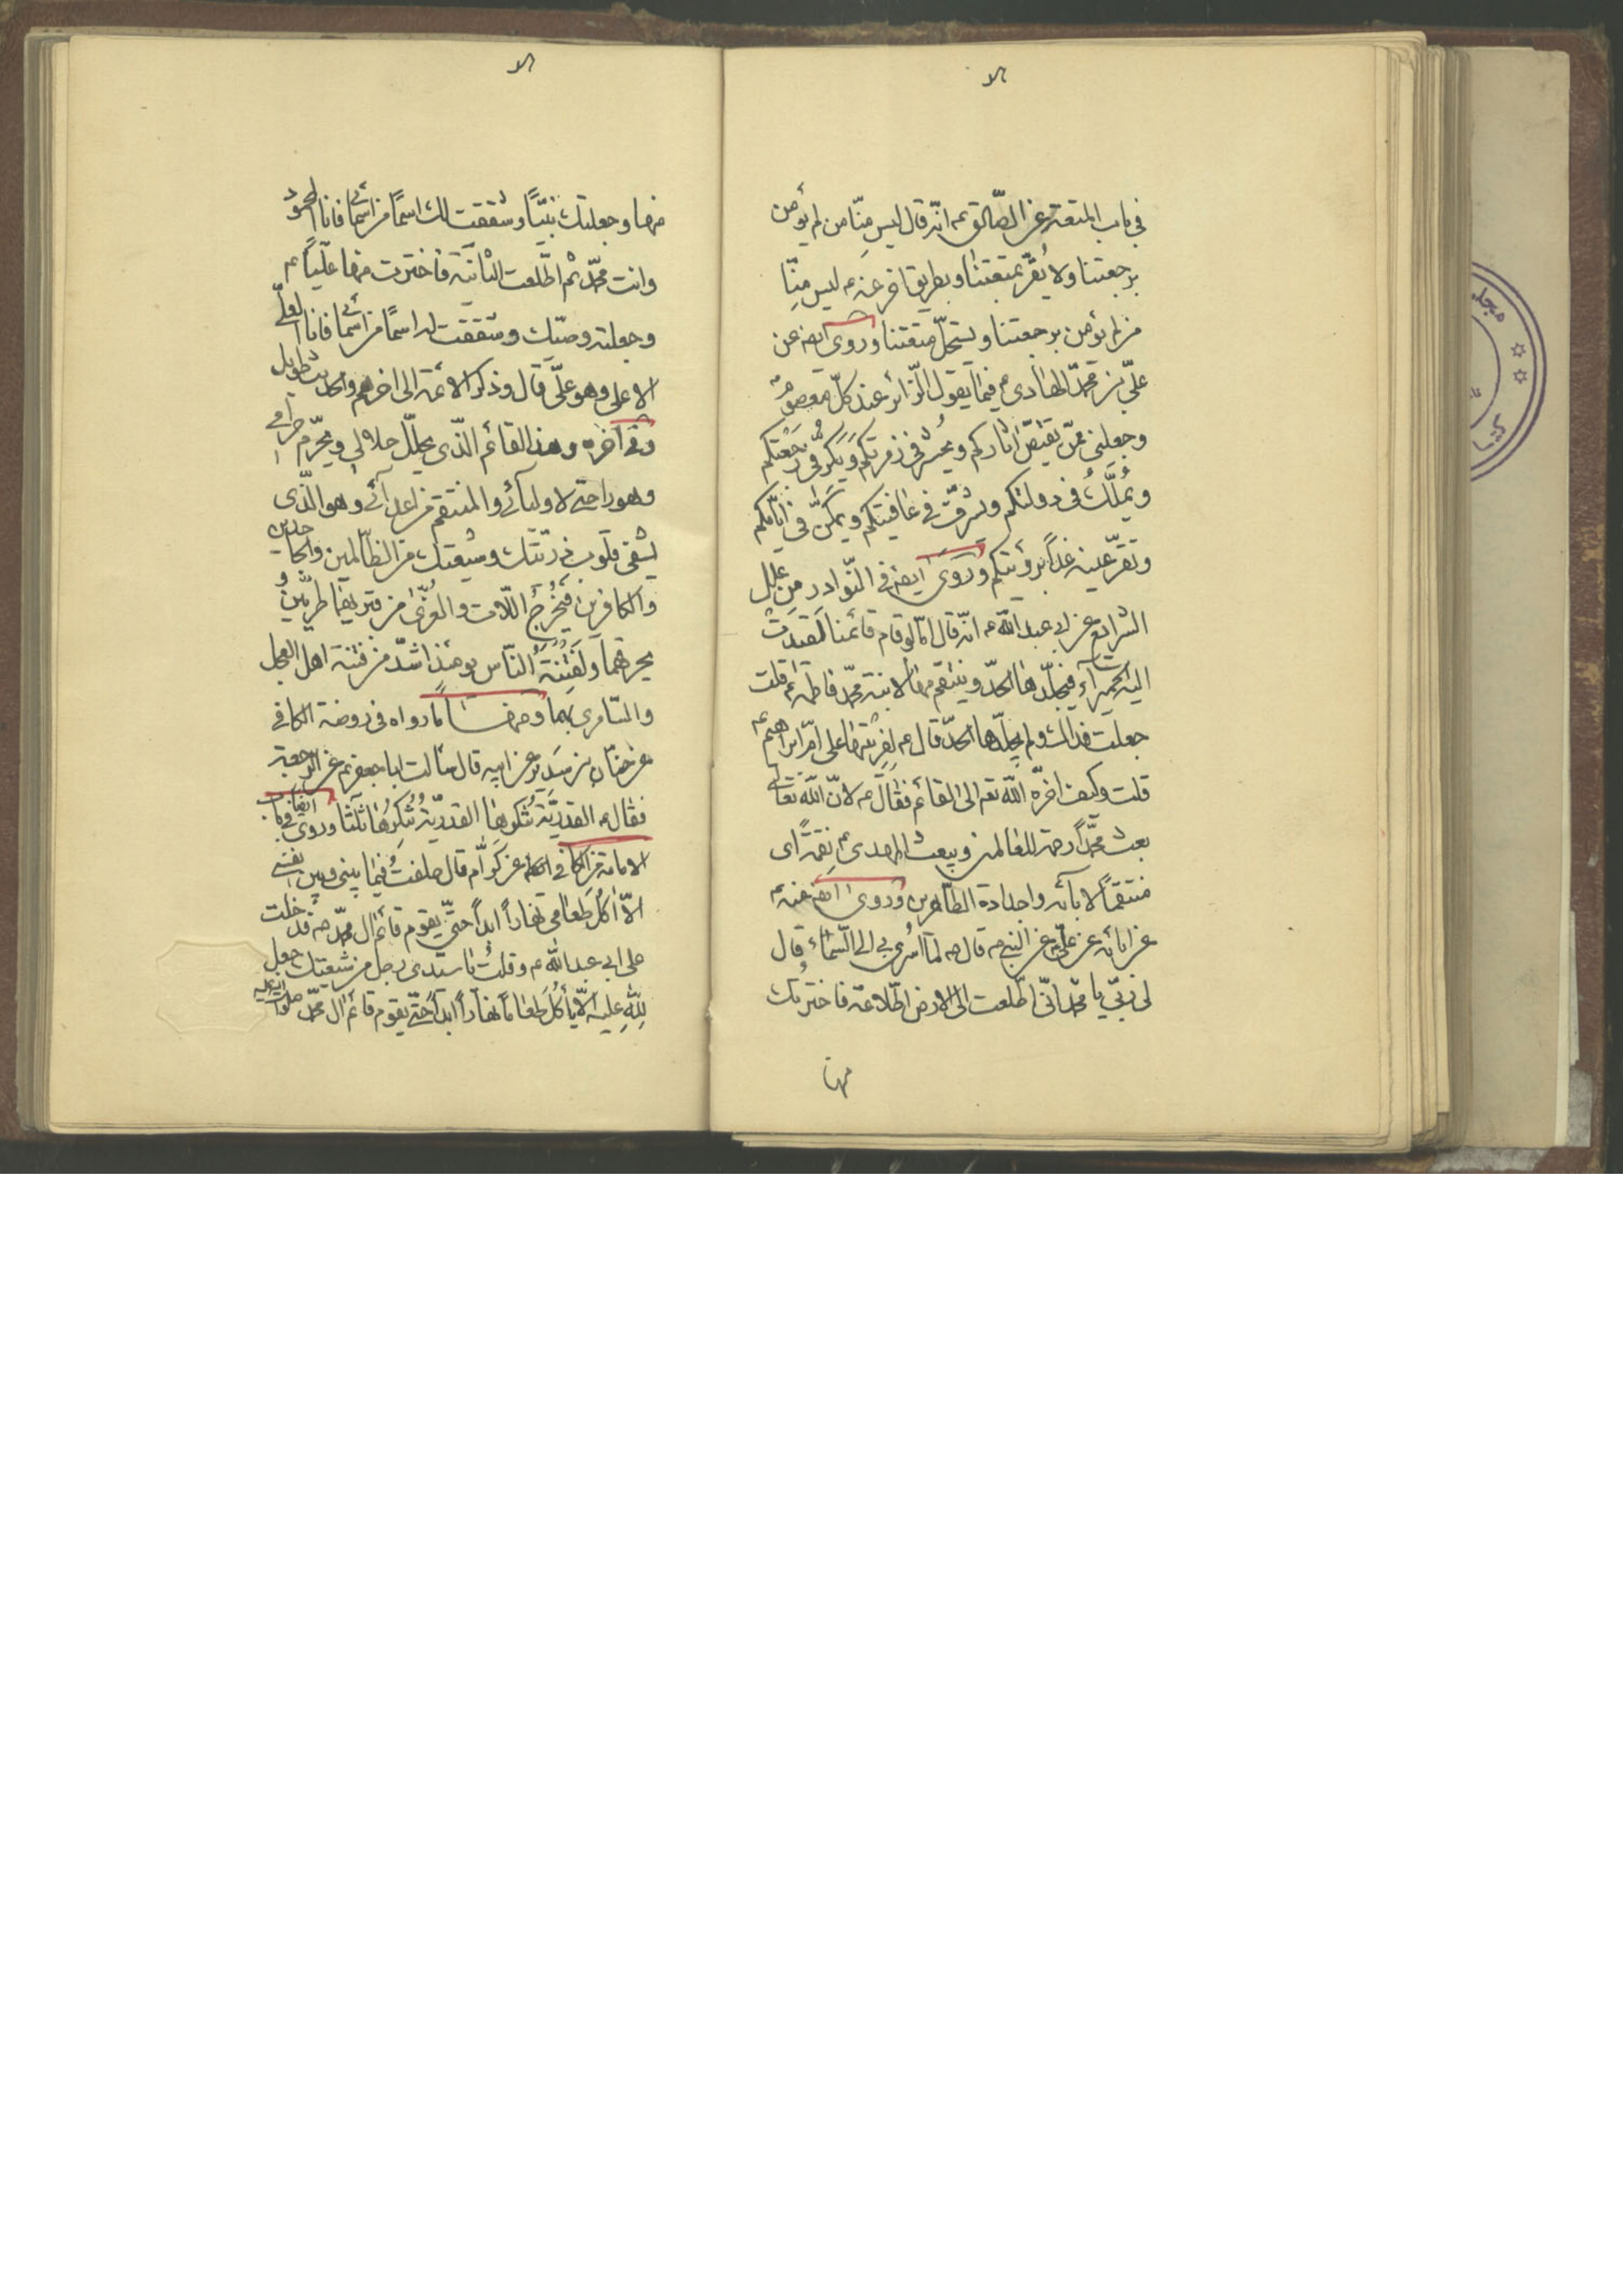 في باب المتعة عن الصّادق ع انّه قال ليس منّا من لم يؤمن
برجعتنا ولا يُقرّ بمتعتنا وبطريق اخر عنه ع ليس منّا
من لم يؤمن برجعتنا ويستحلّ متعتنا وروى ايضه عن
علىّ بن محمّد الهادى ع فيما يقول الزّائر عند كلّ معصوم
وجعلنى ممّن يقتصّ اثاركم ويُحشر فى زمرتكم ويَكرّ فى رَجْعَتكم
ويُمَلَّكُ فى دولتكم ويُشرّف فى عافيتكم ويُمَكّن فى ايّامكم
وتقرّ عينه غداً برؤيتكم وروى ايضه فى النّوادر من علل
الشرايع عن ابى عبد الله ع انّه قال امّا لو قام قائمنا لقد رُدّت
اليه الحميراء فيجلّدها الحدّ وينتقم منها لابنة محمّد فاطمة ع قلت
جعلت فداك ولم يجلّدها الحدّ قال ع لفِريتها على امّ ابراهيم ع
قلت وكيف اخّره الله تع الى القائم فقال ع لانّ الله تعالى
بعث محمّداً رحمة للعالمين ويبعث المهدى ع نقمةً اى
منتقماً لابآئه واجداده الطّاهرين وروى ايضه عنه ع
عن ابائه عن علىّ ع عن النبى ص قال ص لمّا اُسرى بى الى السّماء قال
لى ربّى يا محمّد انّى اطّلعت الى الارض اطّلاعة فاخترتك
منها
منها وجعلتك نبيّاً وشققت لك اسماً من اسمائى فانا المحمود
وانت محمّد ثم اطّلعت الثّانية فاخترت منها عليّاً ع
وجعلته وصيّك وشققت له اسماً من اسمائى فانا العلىّ
الاعلى وهو علىّ قال وذكر الائمة الى اخرهم والحديث طويل
وفى آخره وهذا القائم الّذى يحلّل حلالى ويحرّم حرامى
وهو راحة لاوليآئى والمنتقم من اعدآئى وهو الّذى
يشفى قلوب ذريّتك وشيعتك من الظّالمين والجاحدين
والكافرين فيُخْرِجُ اللّات والعُزّى من قبريهما طريّين و
يحرقهما وَلَفِتْنَةُ النّاس يومئذ اشدّ من فتنة اهل العجل
والسّامرى بهما ومنها ما رواه فى روضة الكافى
عن حنان بن سَدِير عن ابيه قال سالت ابا جعفر ع عن الرجعة
فقال ع القدريّة تُنكرها القدريّة تُنكِرُها ثلثا وروى ايضا فى باب
الامامة من الكافى عن كرّام قال حلفتُ فيما بينى وبين نفسى
الّا اكُلَ طعامى نهاراً ابداً حتّى يقوم قائم ال محمّد ص فدخلت
على ابى عبد الله ع وقلتُ يا سيّدى رجل من شيعتك جعل
لِلّهِ عليه الّا يأكُل طعاماً نهاراً ابداً حتّى يقوم قائم ال محمّد صلوات الله عليه